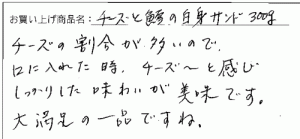 お買い上げ商品名：チーズと鱈の白身サンド300g
チーズの割合が多いので、
口に入れた時、チーズ〜と感じ
しっかりした味わいが美味です。
大満足の一品ですね。